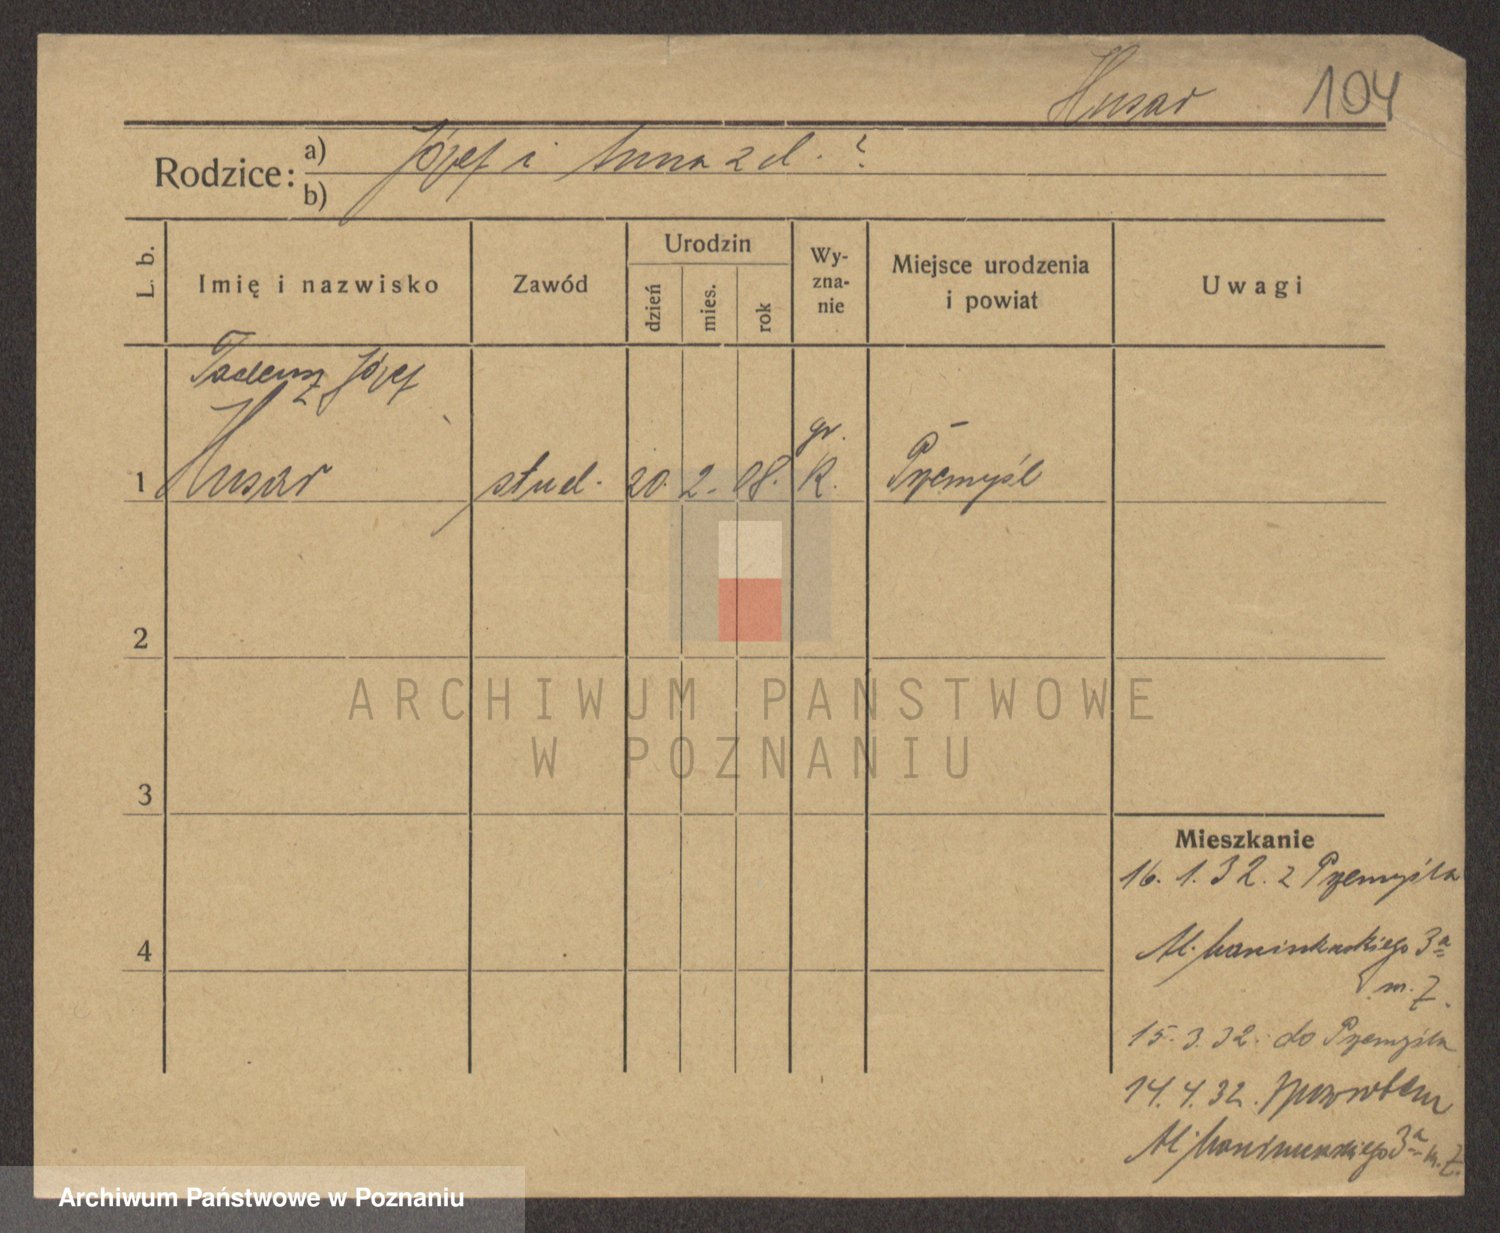 Husar 104
Rodzice: a) Józef i Anna z d. ?
b)
L. b.
Imię i nazwisko
Zawód
Urodzin
dzień
mies.
rok
Wy-
zna-
nie
Miejsce urodzenia
i powiat
Uwagi
Tadeusz Józef
gr.
1 Husar stud. 20. 2. 08. K. Przemyśl
2
3
4
Mieszkanie
16. 1. 32. z Przemyśla
Al. 3a
m. 7.
15. 3. 32. do Przemyśla
14. 4. 32. z powrotem
Al. 3a m. 7.
ARCHIWUM PAŃSTWOWE
W POZNANIU
Archiwum Państwowe w Poznaniu